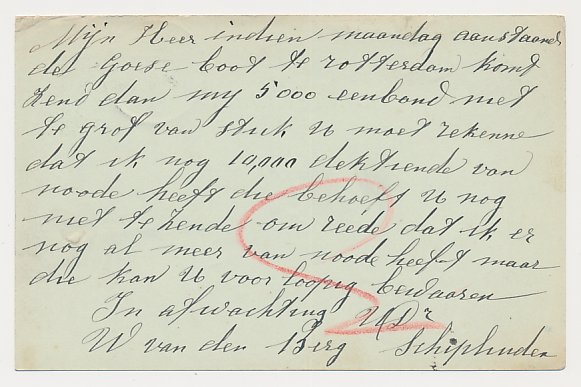 Mijn Heer indien maandag aanstaande
de Goese boot te rotterdam komt
zend dan mij 5000 eenband niet
te grof van stuk U moet rekenne
dat ik nog 10,000 dektiende van
noode heeft die behoeft U nog
niet te zende om reede dat ik er
nog al meer van noode heeft maar
die kan U voorloopig bewaaren
In afwachting UDr
W van den Berg Schipluiden